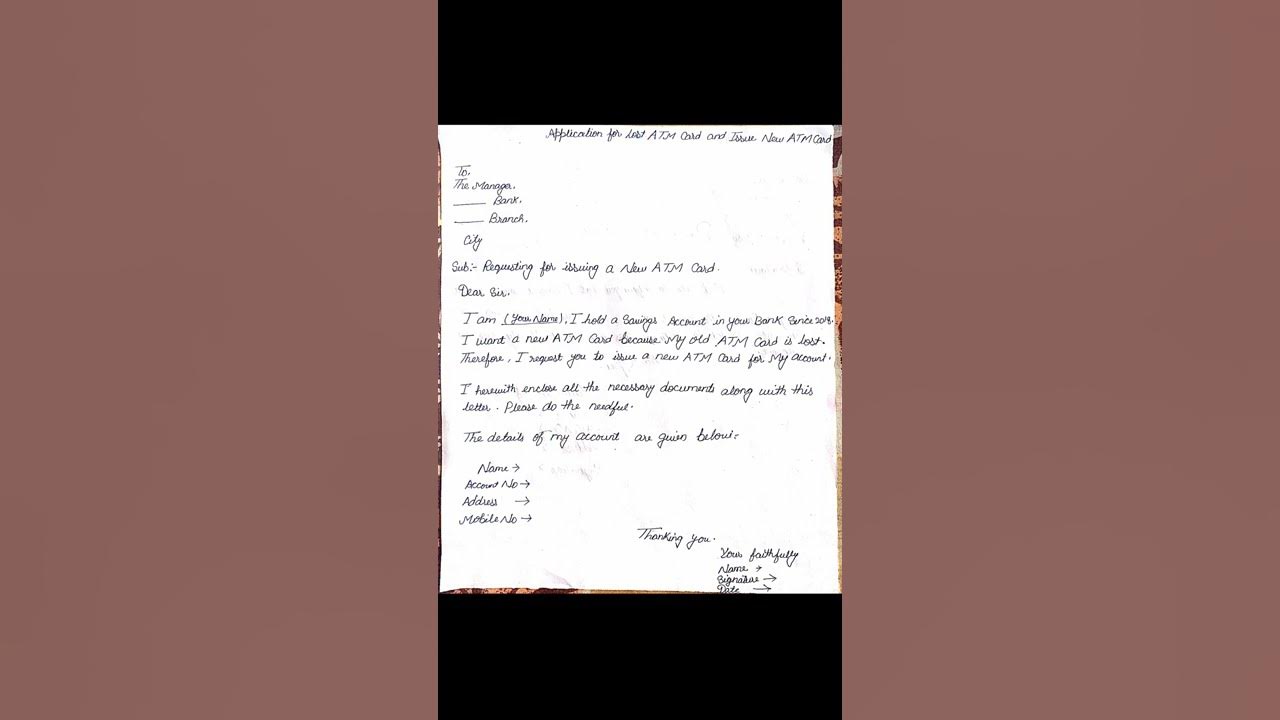 Application for Lost ATM Card and Issue New ATM Card
To,
The Manager,
_____ Bank,
_____ Branch,
City
Sub:- Requesting for issuing a New ATM Card.
Dear Sir,
I am (Your Name), I hold a Savings Account in your Bank Since 2018.
I want a new ATM Card because My old ATM Card is lost.
Therefore, I request you to issue a new ATM Card for My account.
I herewith enclose all the necessary documents along with this
letter. Please do the needful.
The details of my account are given below:-
Name →
Account No →
Address →
Mobile No →
Thanking you.
Your faithfully
Name →
Signature →
Date →